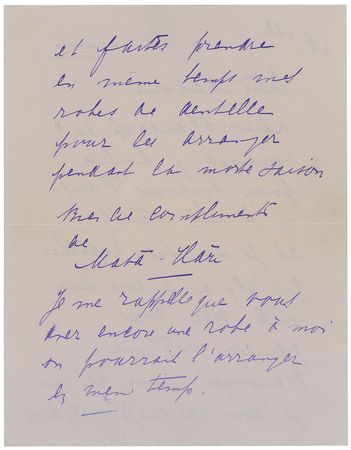 et faites prendre
en même temps mes
robes de dentelle
pour les arranger
pendant la morte saison
Mes compliments
de
Mata-Hari
Je me rappelle que vous
avez encore une robe à moi
on pourrait l'arranger
en même temps.